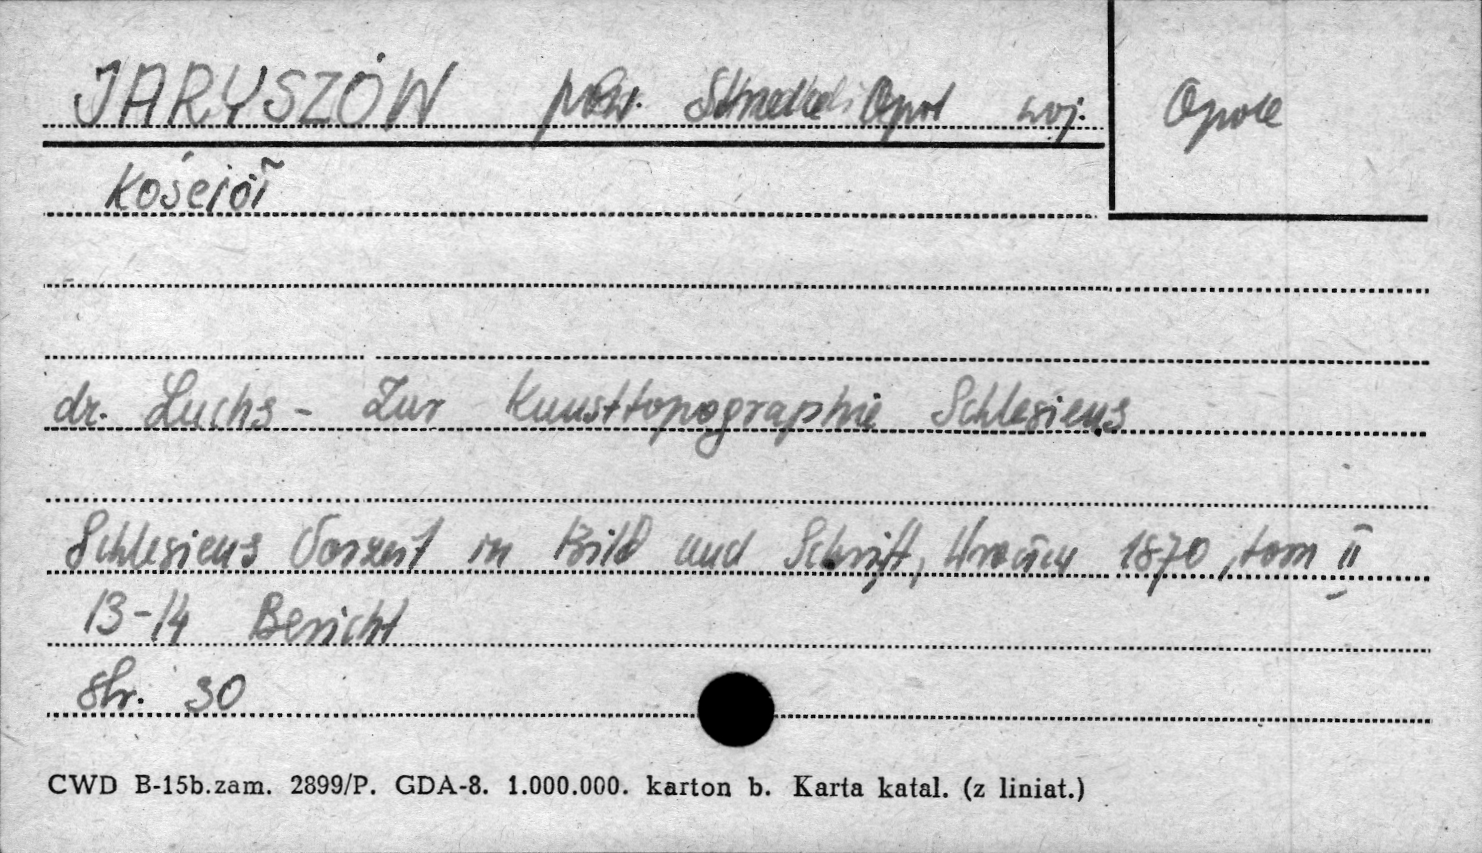 JARYSZÓW pow. Strzelce Opol woj. Opole
Kościół
dr. Luchs - Zur Kunsttopographie Schlesiens
Schlesiens Vorzeit in Bild und Schrift, Wrocław 1870, tom II
13-14 Bericht
str. 30
CWD B-15b.zam. 2899/P. GDA-8. 1.000.000. karton b. Karta katal. (z liniat.)